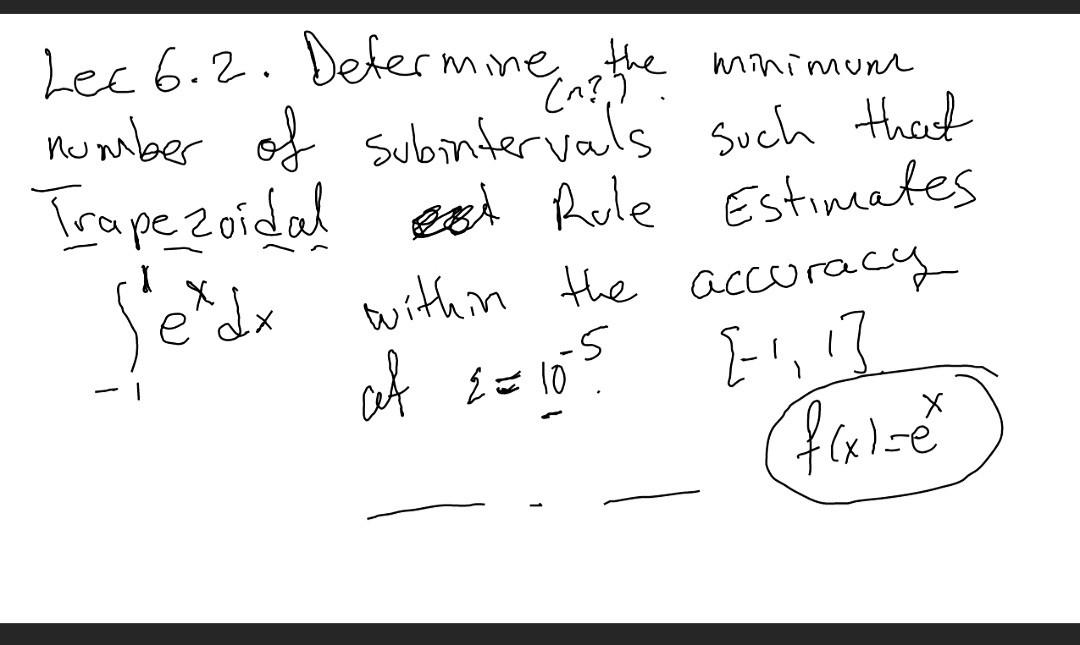 Lec 6.2. Determine the minimum
(n?)
number of subintervals such that
Trapezoidal Rule Estimates
∫₋₁¹ eˣ dx within the accuracy
of ε = 10⁻⁵. [-1, 1]
f(x)=eˣ